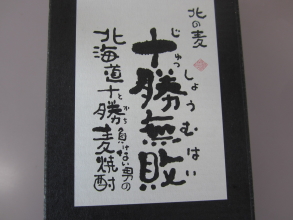 北の麦
十勝無敗
じゅっしょうむはい
負けない男の
北海道十勝麦焼酎
とかち